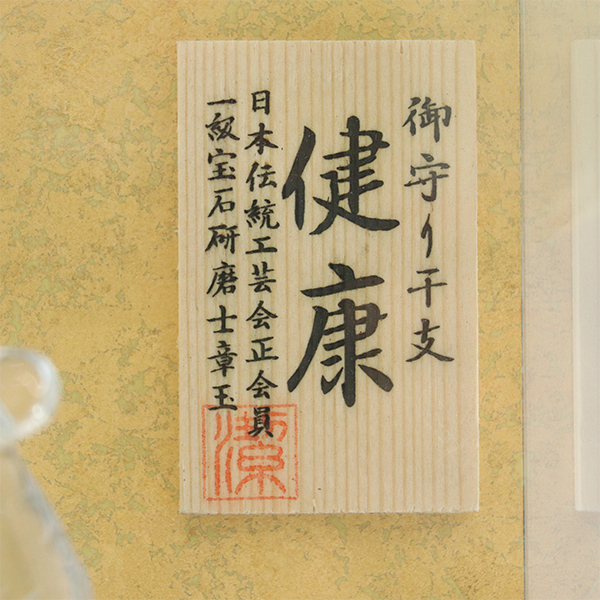 御守り干支
健康
日本伝統工芸会正会員
一級宝石研磨士章玉